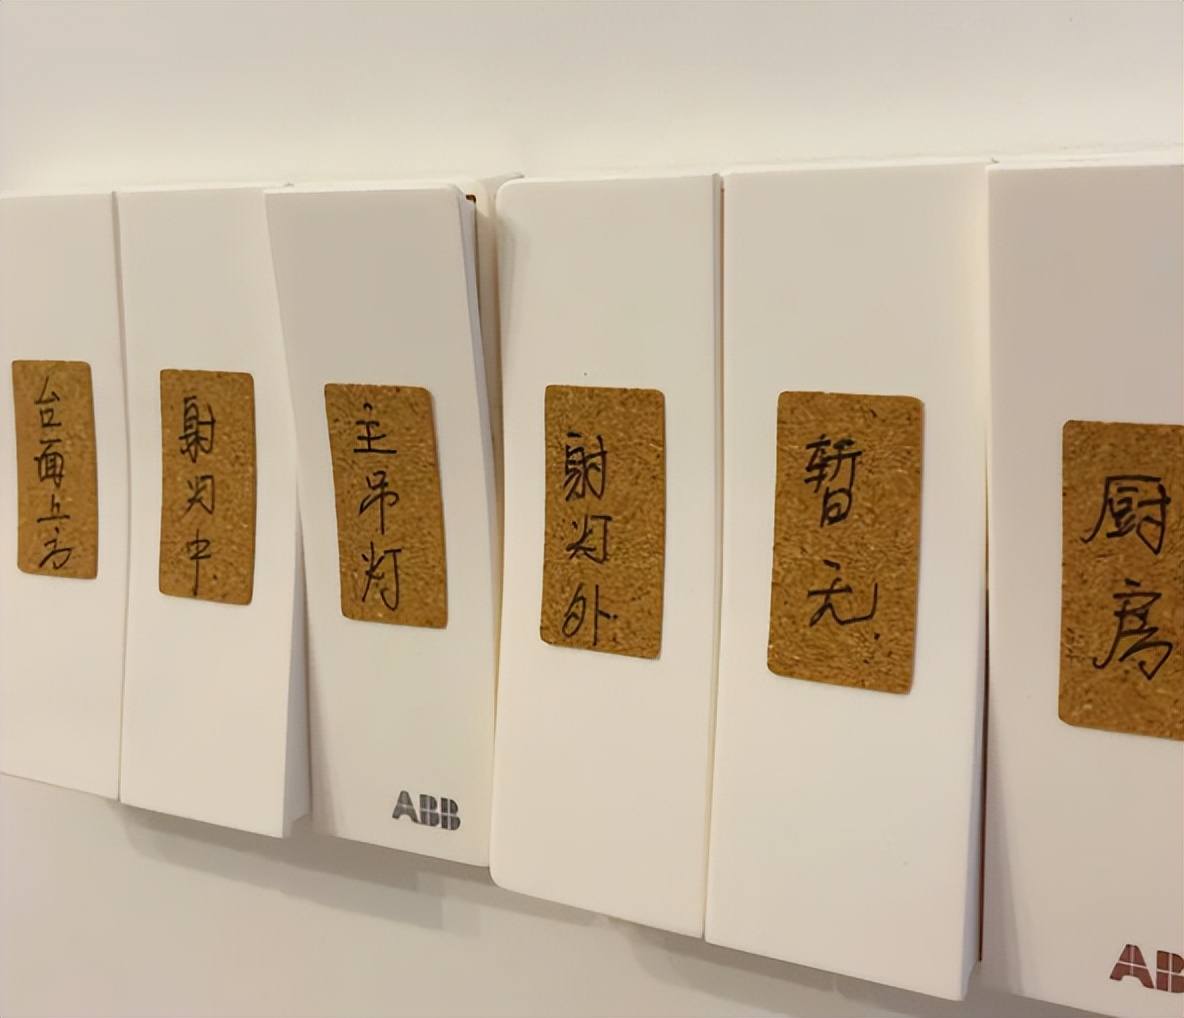 台面上方
射灯中
主吊灯
ABB
射灯外
暂无
厨房
AB